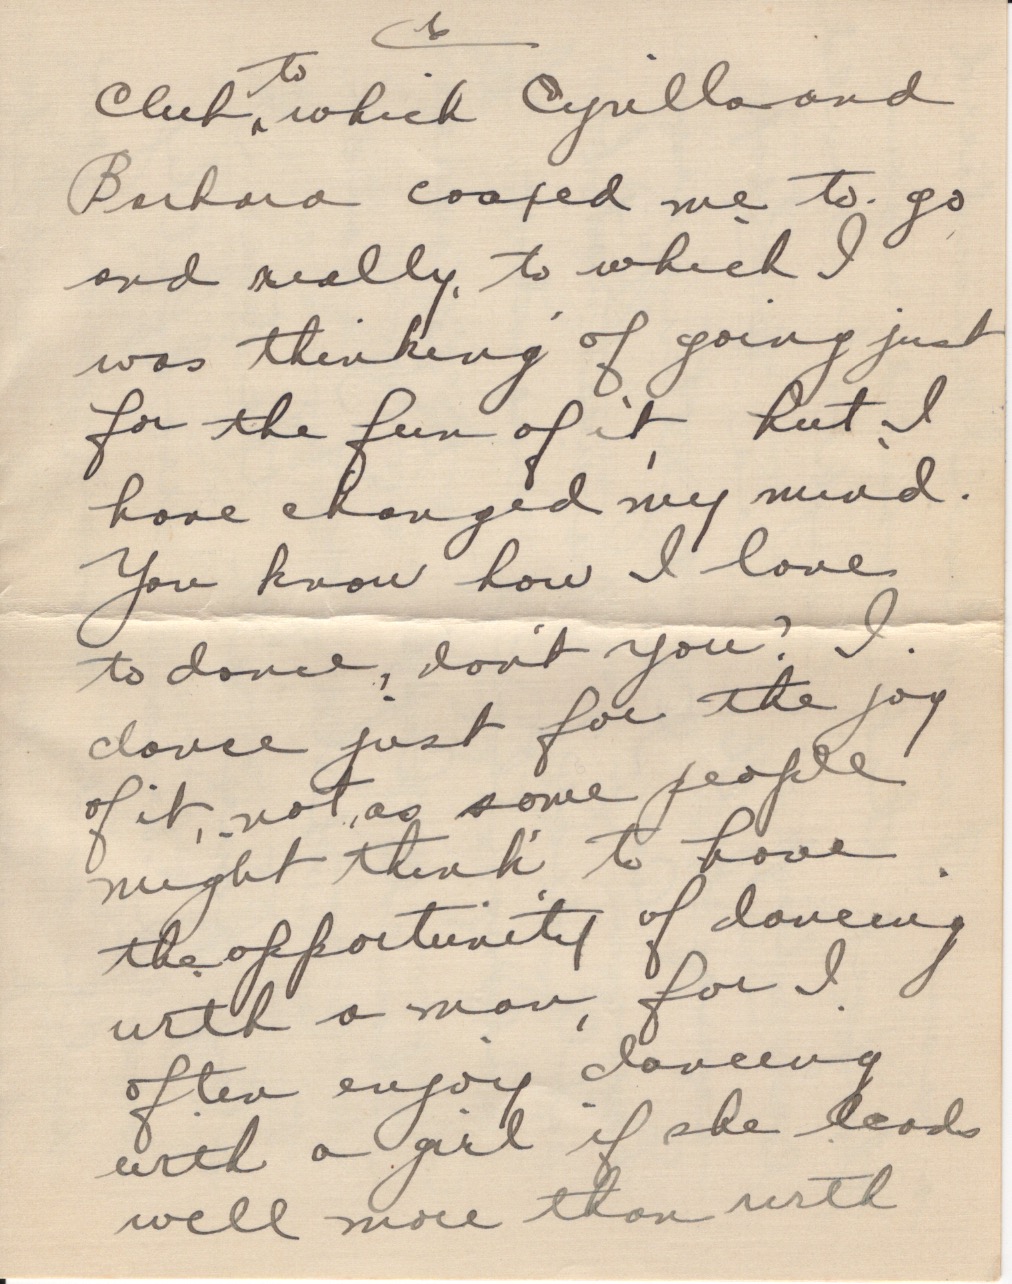 6
Club, to which Cyrilla and
Barbara coaxed me to go
and really, to which I
was thinking of going just
for the fun of it, but I
have changed my mind.
You know how I love
to dance, don't you? I
dance just for the joy
of it, not, as some people
might think, to have
the opportunity of dancing
with a man, for I
often enjoy dancing
with a girl if she leads
well more than with